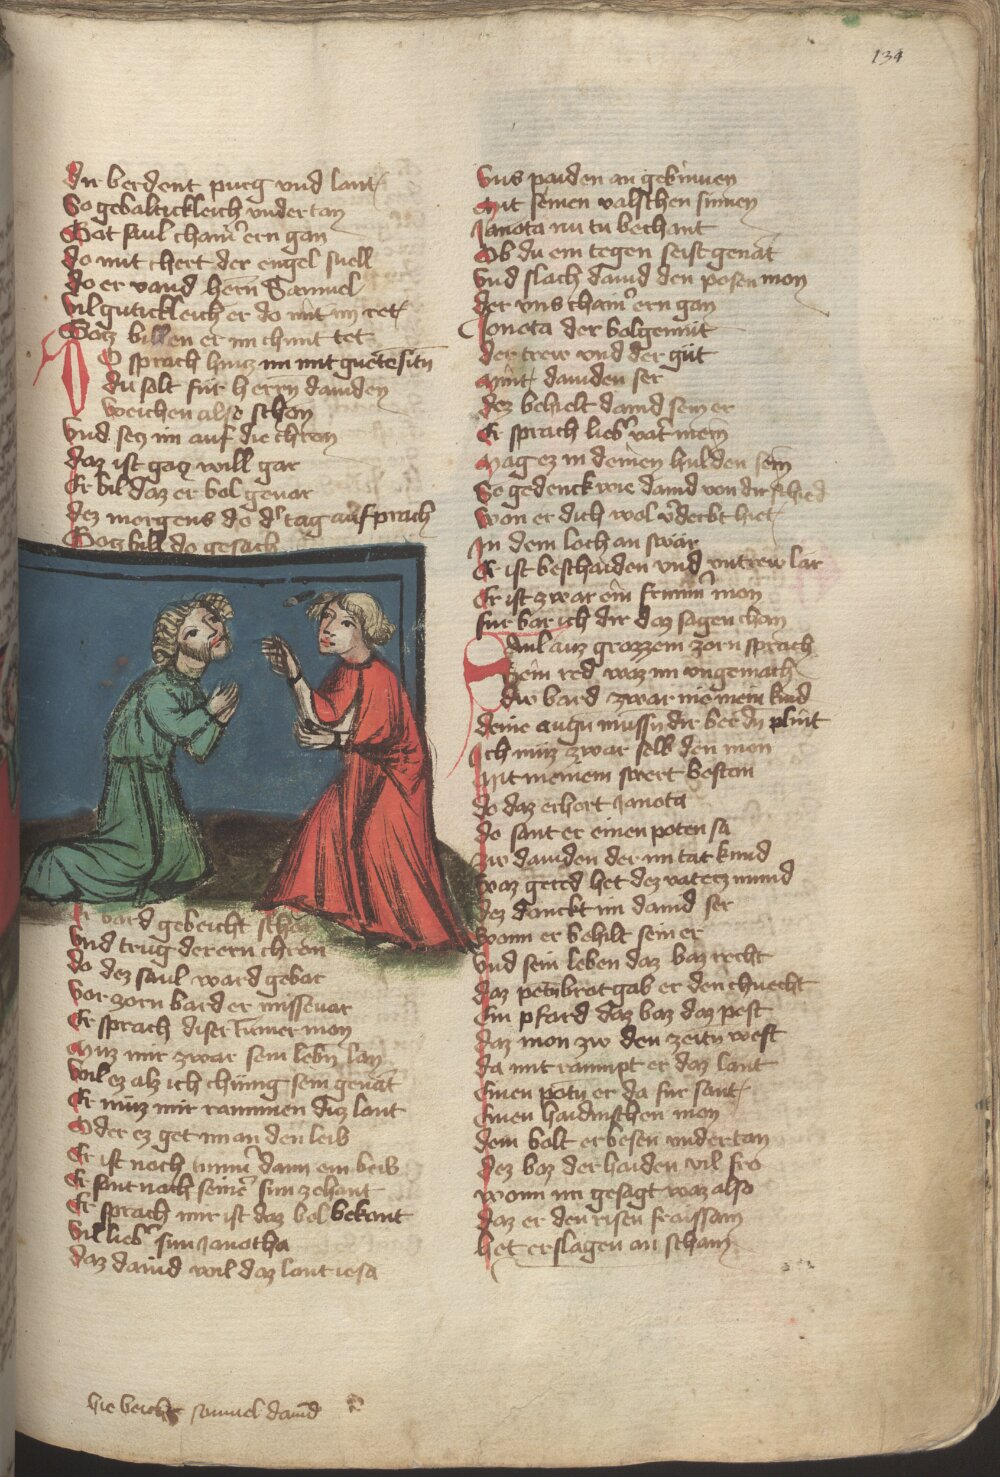 134
dir berdent purg vnd lant
So gebaltickleich vndertan
Got saul cham ern gan
do mit chert der engel snell
do er vand hern Samuel
vil gutickleich er do mit im ret
Gotz billen er im chunt tet
Do sprach hintz im mit guten siten
du solt fur herrn dauiden
weichen also schon
vnd secz im auf die chron
daz ist gotz will gar
Er bil daz er bol geuar
dez morgens do der tag aufprach
Gotz bill do gesach
Er ward gebeicht schon
vnd trug der ern chron
do dez saul ward gebar
vor zorn bard er missevar
Er sprach diser tumer mon
Muz mir zwar sein leben lan
wil ez alz ich chunig sein genant
Er muz mir raumen diz lant
Oder ez get im an den leib
Er ist noch tummer dann ein beib
Er sant nach seinem sun zehant
Er sprach mir ist daz bol bekant
vil lieber sun Janotha
daz dauid wil daz lant iesa
vns paiden an gebinnen
Mit seinen valschen sinnen
Janota nu tu bechant
Ob du ein tegen seist genant
vnd slach dauid den posen mon
der vns cham ern gan
Jonota der bolgemut
der trew vnd der güt
Mint dauiden ser
dez behielt dauid sein er
Er sprach lieber vater mein
Mag ez in deinen hulden sein
So gedenck wie dauid von dir schied
Won er dich wol verderbt hiet
In dem loch an swär
Er ist beschaiden vnd vntrew lär
Er ist zwar ein frummer mon
fur bar ich dir daz sagen chan
Saul auz grozzem zorn sprach
Sein red waz im vngemach
du bard zwar nie mein kind
deine augn mussn dir berdn plint
Ich muz zwar selb den mon
Mit meinem swert bestan
do daz erhort Janota
do sant er einen poten sa
zw dauiden der im tat kund
waz gered het dez vaterz mund
dez danckt im dauid ser
wann er behilt sein er
vnd sein leben daz baz recht
daz petenbrot gab er den chnecht
Ein pfard daz baz daz pest
daz mon zw den zeiten west
da mit raumpt er daz lant
Einen potn er da fur sant
Einen haidnischen mon
dem bolt er besen vndertan
dez baz der haiden vil fro
wonn im gesagt waz also
daz er den risen fraissam
het erslagen an scham
hie beicht samuel dauid